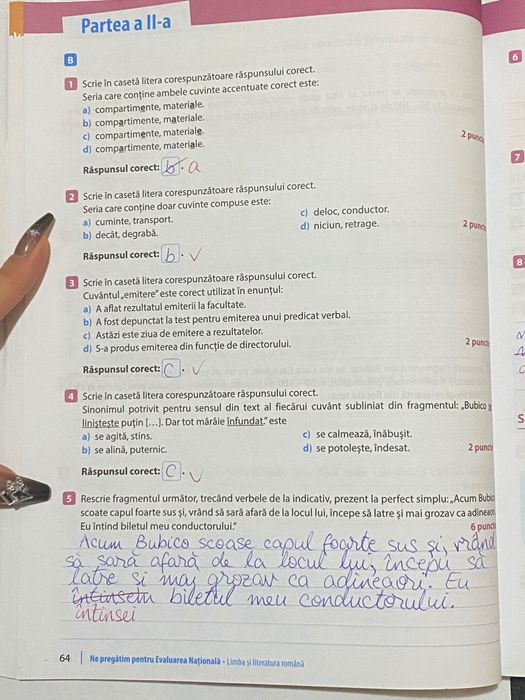 Partea a II-a
B
6
1 Scrie în casetă litera corespunzătoare răspunsului corect.
Seria care conține ambele cuvinte accentuate corect este:
a) compartimente, materiale.
b) compartimente, materiale.
c) compartimente, materiale.
d) compartimente, materiale.
2 puncte
Răspunsul corect: b. a
7
2 Scrie în casetă litera corespunzătoare răspunsului corect.
Seria care conține doar cuvinte compuse este:
a) cuminte, transport.
c) deloc, conductor.
b) decât, degrabă.
d) niciun, retrage.
2 puncte
Răspunsul corect: b.
8
3 Scrie în casetă litera corespunzătoare răspunsului corect.
Cuvântul „emitere” este corect utilizat în enunțul:
a) A aflat rezultatul emiterii la facultate.
b) A fost depunctat la test pentru emiterea unui predicat verbal.
c) Astăzi este ziua de emitere a rezultatelor.
d) S-a produs emiterea din funcție de directorului.
2 puncte
Răspunsul corect: C.
4 Scrie în casetă litera corespunzătoare răspunsului corect.
Sinonimul potrivit pentru sensul din text al fiecărui cuvânt subliniat din fragmentul: „Bubico se
liniștește puțin [...]. Dar tot mârâie înfundat.” este
a) se agită, stins.
c) se calmează, înăbușit.
b) se alină, puternic.
d) se potolește, îndesat.
2 puncte
Răspunsul corect: C.
5 Rescrie fragmentul următor, trecând verbele de la indicativ, prezent la perfect simplu: „Acum Bubico
scoate capul foarte sus și, vrând să sară afară de la locul lui, începe să latre și mai grozav ca adineaori.
Eu întind biletul meu conductorului.”
6 puncte
Acum Bubico scoase capul foarte sus și, vrând
să sară afară de la locul lui, începu să
latre și mai grozav ca adineaori. Eu
întinsem biletul meu conductorului.
întinsei
64 Ne pregătim pentru Evaluarea Națională • Limba și literatura română